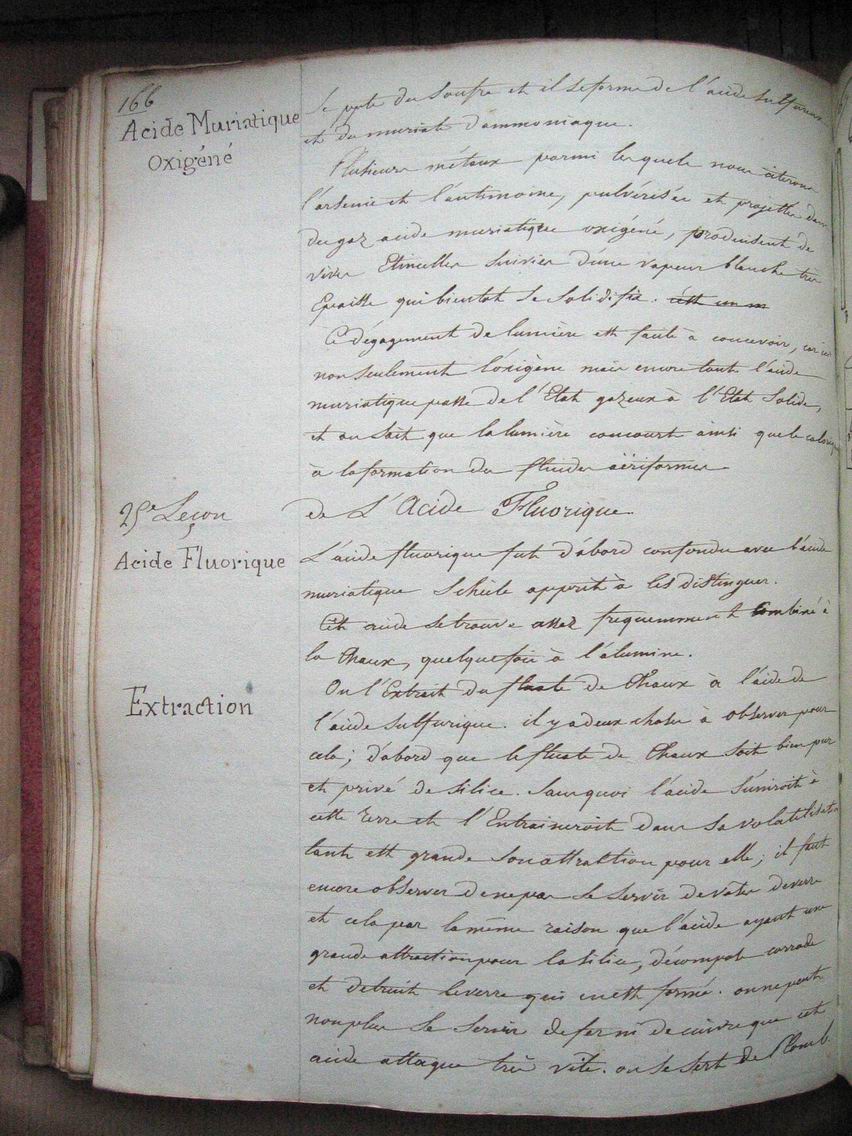 166
Acide Muriatique
Oxigéné
Se ppte du Soufre et il se forme de l'acide sulfureux
et du muriate d'ammoniaque.
Plusieurs métaux parmi lesquels nous citerons
l'arsenic et l'antimoine, pulvérisés et projettés dans
du gaz acide muriatique oxigéné, produisent de
vives Etincelles suivies d'une vapeur blanche très
Epaisse qui bientot se solidifie. c'ést un m
Ce dégagement de lumière est facile à concevoir, car ici
non seulement l'oxigène mais encore toute l'acide
muriatique passe de l'Etat gazeux à l'Etat Solide,
et on sait que la lumière concourt ainsi que le calorique
à la formation des fluides aëriformes
25e Leçon
de L'Acide Fluorique
Acide Fluorique
L'acide fluorique fut d'abord confondu avec l'acide
muriatique Schéele apprit à les distinguer.
Cet acide se trouve assez frequemment Combiné à
la Chaux, quelquefois à l'alumine.
Extraction
On l'Extrait du fluate de Chaux à l'aide de
l'acide sulfurique. il y a deux choses à observer pour
cela; d'abord que le fluate de Chaux soit bien pur
et privé de silice. Sans quoi l'acide s'uniroit à
cette terre et l'Entraineroit dans sa volatilisation
tant est grande son attraktion pour elle; il faut
encore observer de ne pas se servir de vases de verre
et cela par la même raison que l'acide ayant une
grande attraction pour la silice, décompose corrode
et detruit le verre qui en est formé. on ne peut
non plus se servir de fer ni de cuivre que cet
acide attaque très vite. on se sert de Plomb